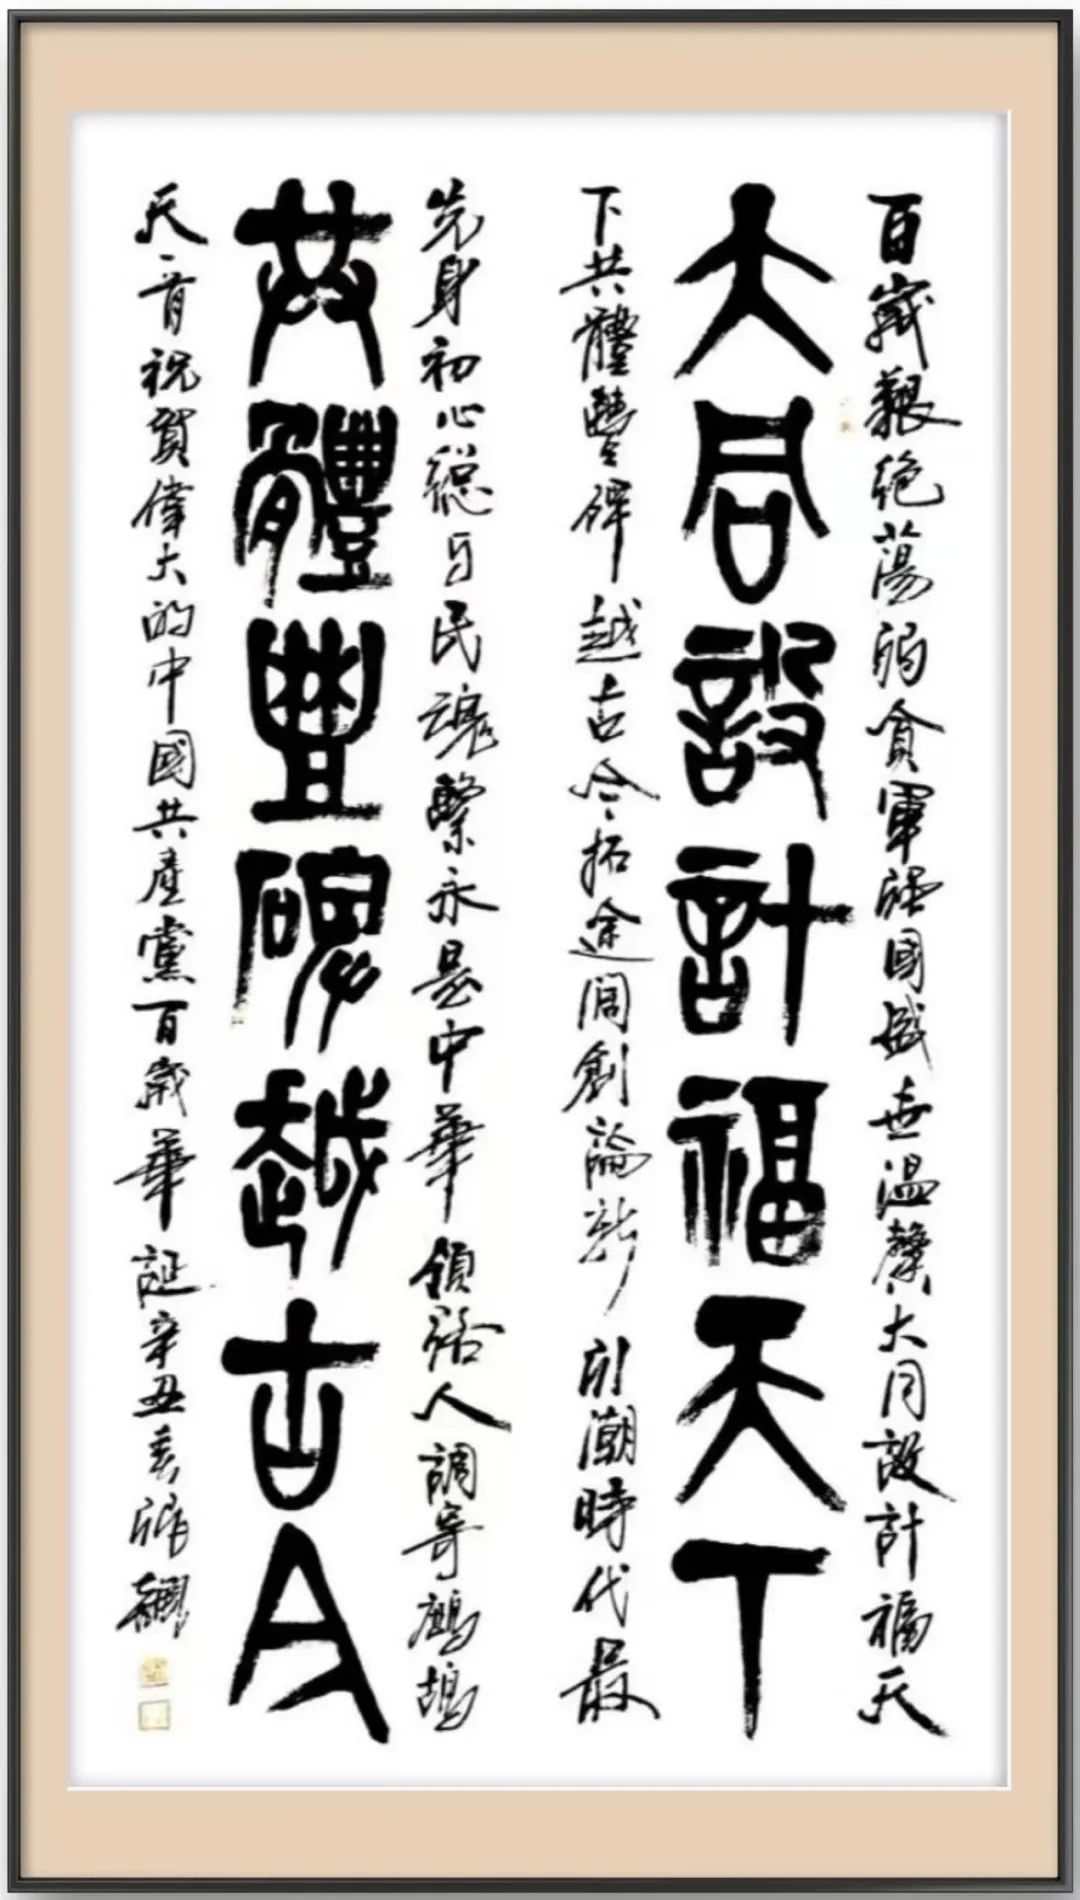 百歲艱絕蕩弱貧軍強國盛世溫馨大同設計福天
大同設計福天下
下共體豐碑越古今拓途闊創論新引潮時代最
共體豐碑越古今
先身初心總與民魂繫永是中華領路人調寄鷓鴣
天一首祝賀偉大的中國共產黨百歲華誕辛丑春